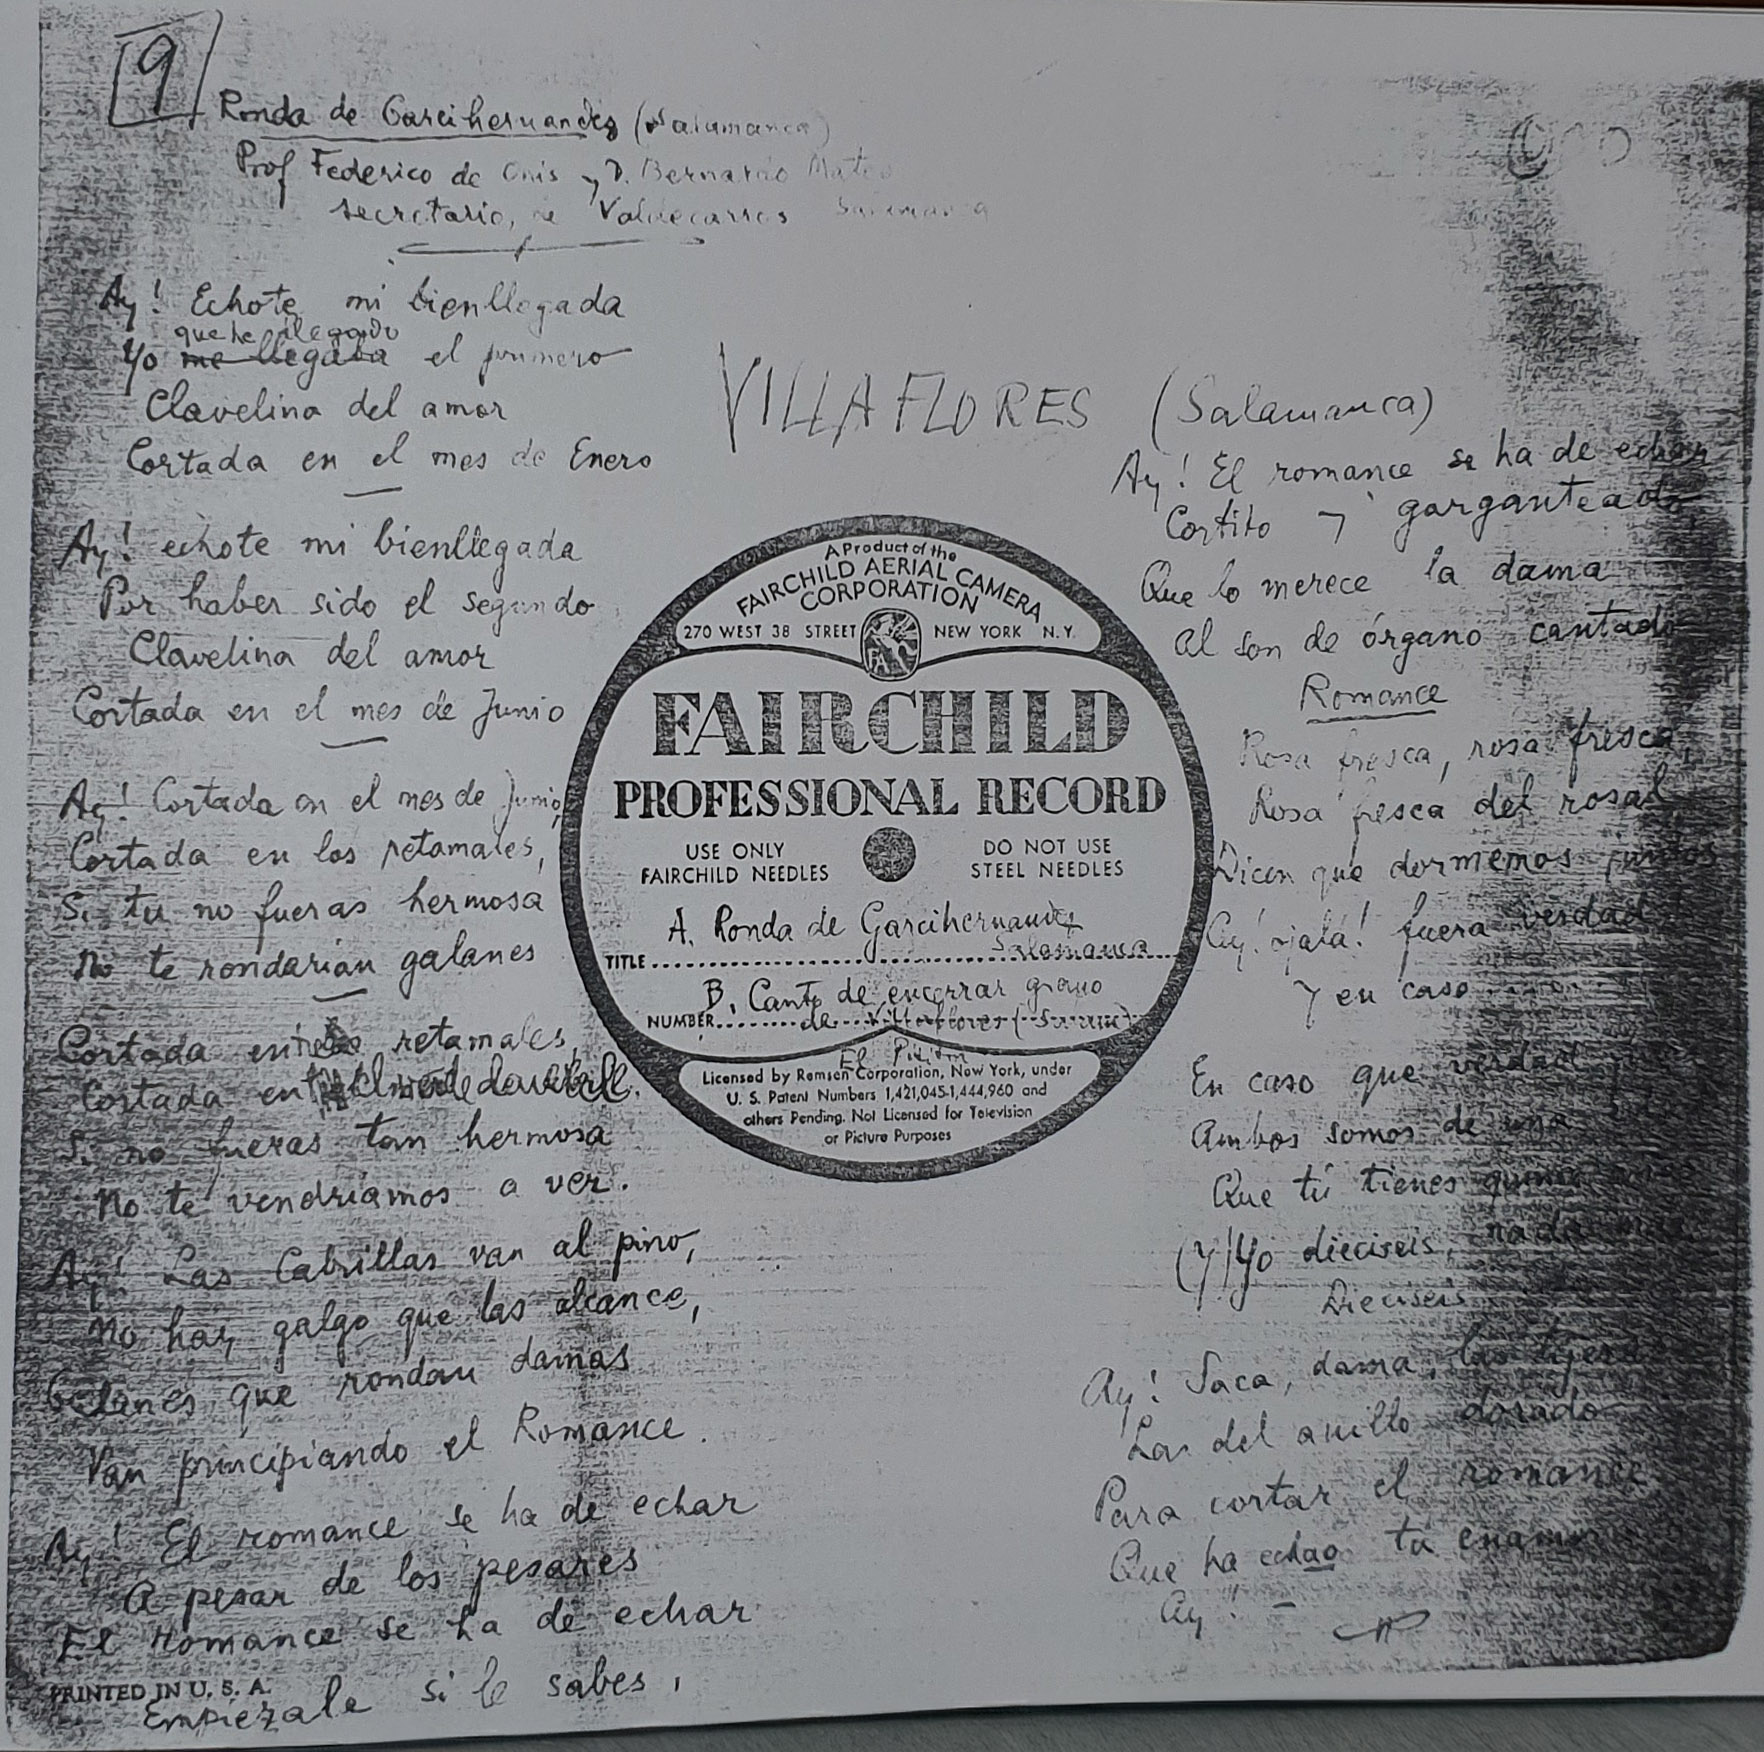 9
Ronda de Garcihernandez (Salamanca)
Prof Federico de Onis y D. Bernardo Mateo
secretario, de Valdecarros Salamanca
Ay! Echote mi bienllegada
que he llegado
Yo me llegaba el primero
Clavelina del amor
Cortada en el mes de Enero
Ay! echote mi bienllegada
Por haber sido el segundo
Clavelina del amor
Cortada en el mes de Junio
Ay! Cortada en el mes de Junio,
Cortada en los retamales,
Si tu no fueras hermosa
No te rondarian galanes
Cortada entre retamales,
Cortada
Si no fueras tan hermosa
No te vendriamos a ver.
Ay! Las Cabrillas van al pino,
No hay galgo que las alcance,
Galanes que rondan damas
Van principiando el Romance.
Ay! El romance se ha de echar
A pesar de los pesares
El romance se ha de echar
PRINTED IN U. S. A.
Empiézale si le sabes,
VILLAFLORES (Salamanca)
A Product of the
FAIRCHILD AERIAL CAMERA
CORPORATION
270 WEST 38 STREET NEW YORK N.Y.
FA
FAIRCHILD
PROFESSIONAL RECORD
USE ONLY
FAIRCHILD NEEDLES
DO NOT USE
STEEL NEEDLES
A. Ronda de Garcihernandez
TITLE Salamanca
B. Canto de encerrar grano
NUMBER de Villaflores
El
Licensed by Remsen Corporation, New York, under
U. S. Patent Numbers 1,421,045-1,444,960 and
others Pending. Not Licensed for Television
or Picture Purposes
Ay! El romance se ha de echar
Cortito y garganteado,
Que lo merece la dama
al son de órgano cantado
Romance
Rosa fresca, rosa fresca,
Rosa fresca del rosal
Dicen que dormemos juntos
Ay! ojalá! fuera verdad!
Y en caso
En caso que verdad
Ambos somos de una
Que tú tienes
(Y) Yo dieciseis, nada mas
Dieciseis
Ay! Saca, dama, las tijeras
Las del anillo dorado
Para cortar el romance
Que ha echao tu
Ay! -